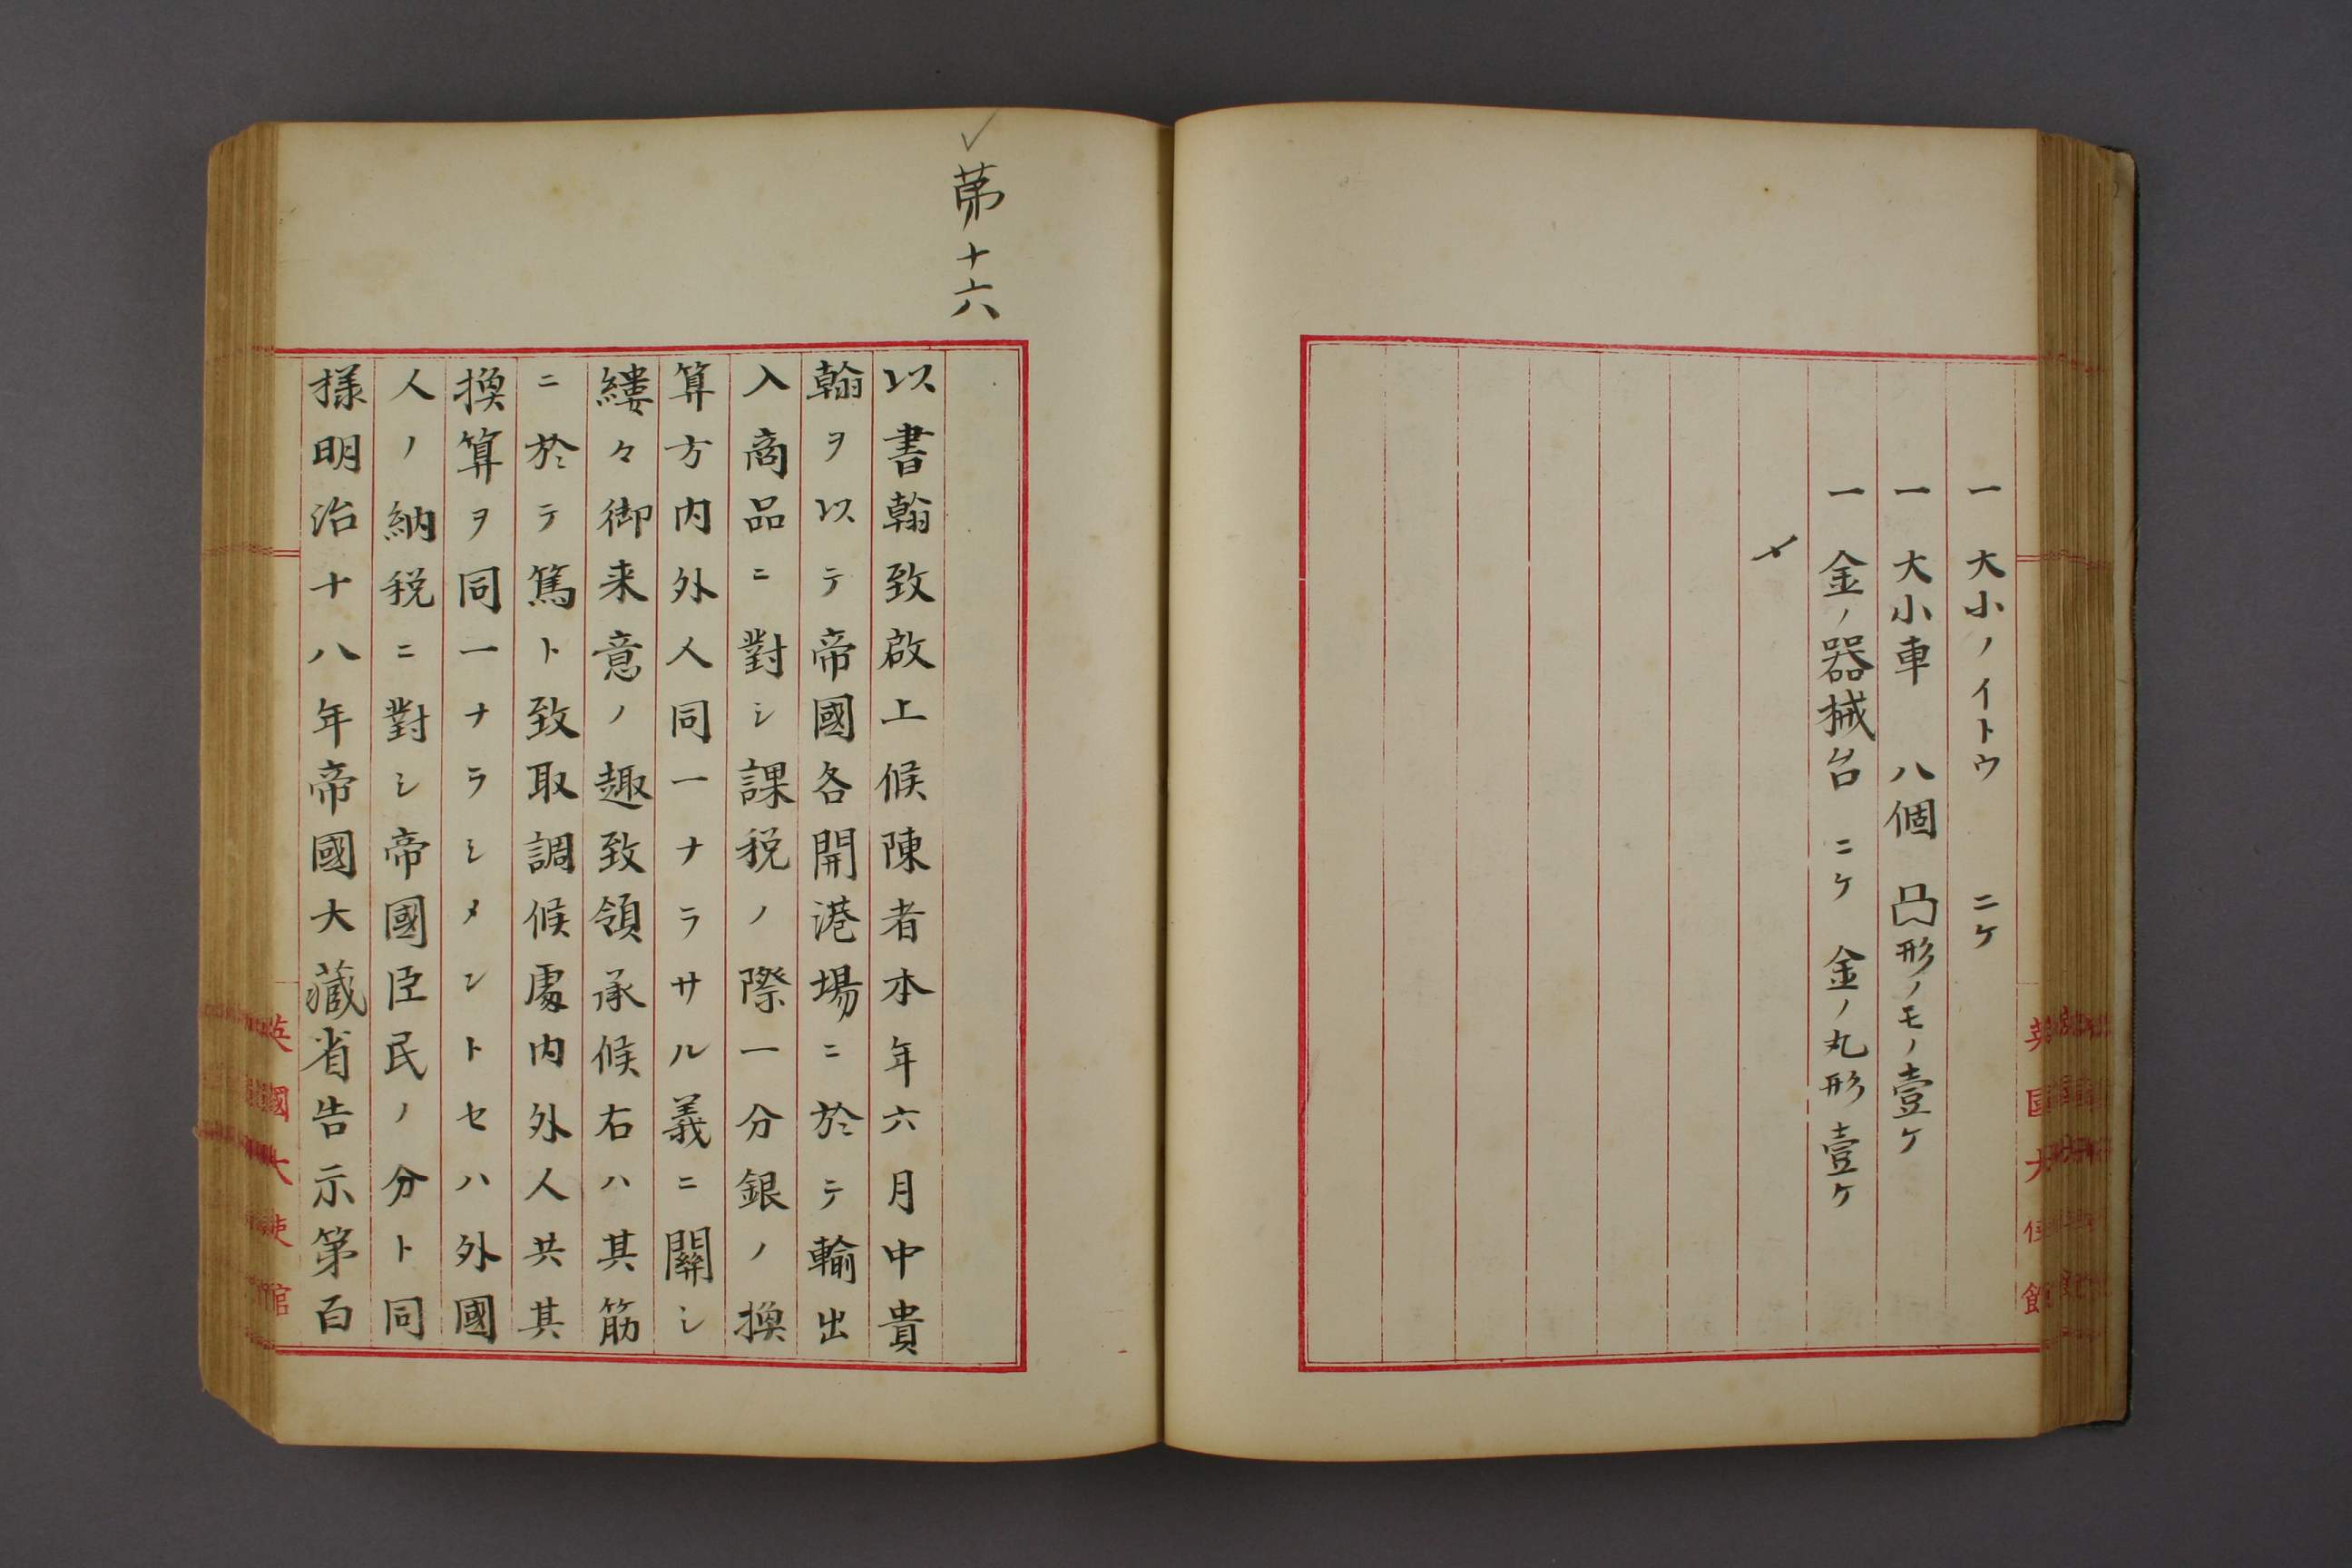 一 大小ノイトウ 二ケ
一 大小車 八個 凸形ノモノ壹ケ
一 金ノ器械台 二ケ 金ノ丸形 壹ケ
〆
英國大使館
第十六
以書翰致啟上候陳者本年六月中貴
翰ヲ以テ帝國各開港場ニ於テ輸出
入商品ニ對シ課税ノ際一分銀ノ換
算方内外人同一ナラサル義ニ關シ
縷々御来意ノ趣致領承候右ハ其筋
ニ於テ篤ト致取調候處内外人共其
換算ヲ同一ナラシメントセハ外國
人ノ納税ニ對シ帝國臣民ノ分ト同
様明治十八年帝國大藏省告示第百
英國大使館